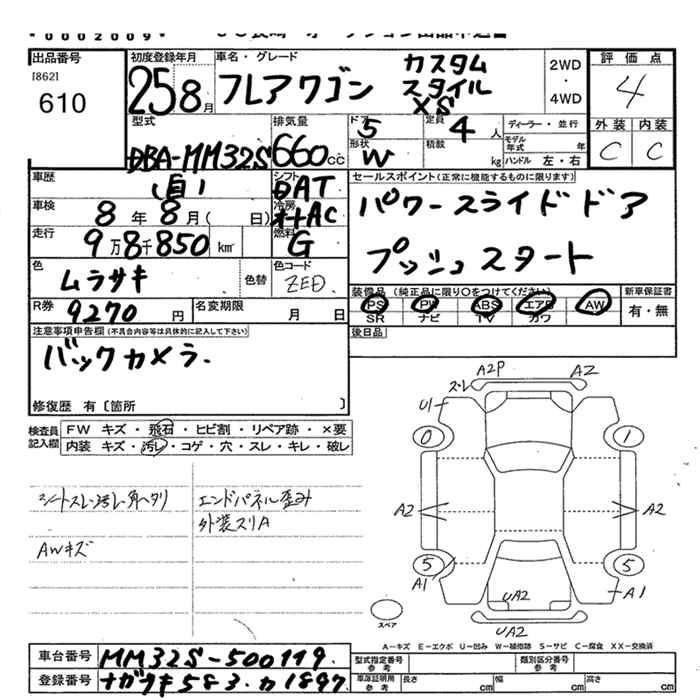 *0002009*
出品番号
[862]
610
初度登録年月
25 8月
車名・グレード
フレアワゴン
カスタム
スタイル
XS
2WD
・
4WD
評価点
4
外装 内装
C C
型式
DBA-MM32S
排気量
660cc
ドア
5
形状
W
定員
4人
積載
kg
ディーラー・並行
モデル年式 年
ハンドル 左・右
車歴
(自)
シフト
DAT
車検
8年8月( 日)
冷房
オートAC
走行
9万8千850km
燃料
G
色
ムラサキ
色替
色コード
ZED
R券
9270円
名変期限
月 日
セールスポイント(正常に機能するものに限ります)
パワースライドドア
プッシュスタート
装備品(純正品に限り○をつけてください)
PS PW ABS エアB AW
SR ナビ TV カワ
新車保証書
有・無
後日品
注意事項申告欄(不具合内容等は具体的に記入して下さい)
バックカメラ.
修復歴 有〔箇所 〕
検査員記入欄
FW キズ・飛石・ヒビ割・リペア跡・×要
内装 キズ・汚レ・コゲ・穴・スレ・キレ・破レ
シートスレ・汚レ・角ヘタリ
AWキズ
エンドパネル歪み
外装スリA
スレ A2P A2
U1
0 1
A2 A2
5 5
A1 A1
UA2
UA2
スペア
A-キズ E-エクボ U-凹み W-補修跡 S-サビ C-腐食 XX-交換済
車台番号
MM32S-500119.
登録番号
ナガサキ583.カ1897
型式指定番号 参考
類別区分番号 参考
車庫証明用 参考
長さ cm
幅 cm
高さ cm